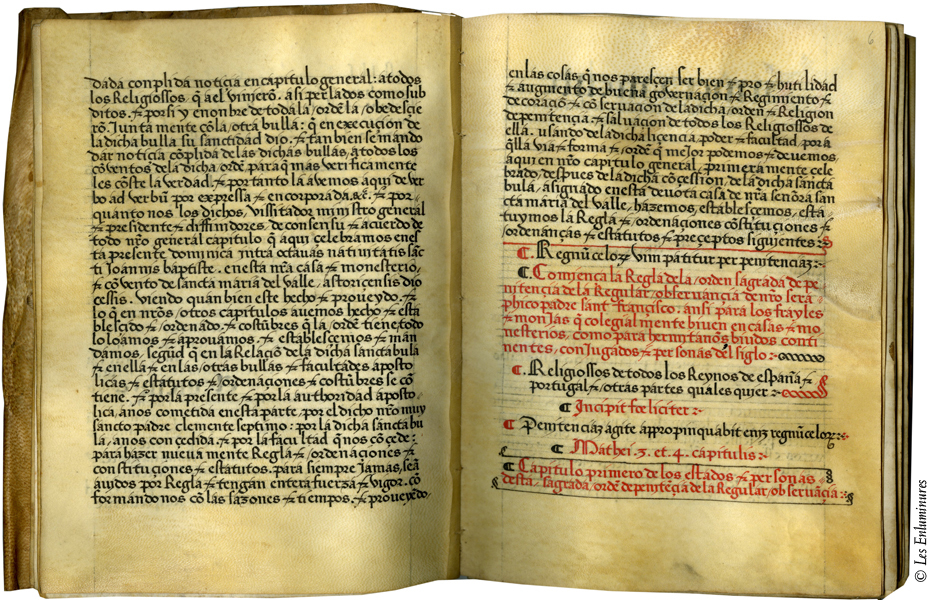 dada conplida noticia en capitulo general: a todos
los Religiosšos q̃ a el viniẽrõ. asi perlados como sub
ditos. ⁊ por si y enonbre de toda la / ordẽ la / obedesçie
rõ. Junta mente cõ la / otra bulla: q̃ en execuçion de
la dicha bulla su sanctidad dio. ⁊ tanbien se mando
dar notiçia cõplida de las dichas bullas, a todos los
cõventos de la dicha / ordẽ. para q̃ mas verifica mente
les cõste la verdad. ⁊ por tanto la avemos aqui de ver
bo ad verbũ por expressa ⁊ encorporada. &c̃. ⁊ por
quanto nos los dichos, vissitador ministro general
⁊ presidente ⁊ diffinidores, de consensu ⁊ acuerdo de
todo nr̃o general capitulo q̃ aqui çelebramos enes
ta presente dominica yntra octauas natiuitatis sãc
ti Joannis baptiste. enesta nr̃a casa ⁊ monesterio,
⁊ cõvento de sancta maria del valle, astoricensis dio
çessis. viendo quan bien este hecho ⁊ proueydo. ⁊
lo q̃ en nr̃os / otros capitulos avemos hecho ⁊ esta
blesçido ⁊ / ordenado. ⁊ costũbres q̃ la / ordẽ tiene. todo
lo loamos ⁊ aprouamos. ⁊ establesçemos ⁊ man
damos, segũd q̃ en la Relaçiõ de la dicha sancta bula
⁊ en ella ⁊ en las / otras bullas ⁊ facultades aposto
licas ⁊ estatutos ⁊ / ordenaçiones ⁊ costũbres se cõ
tiene. ⁊ por la presente ⁊ por la authoridad aposto
lica, a nos cometida en esta parte, por el dicho nr̃o muy
sancto padre clemente septimo: por la dicha sancta bu
la, a nos conçedida. ⁊ por la facultad q̃ nos cõçede:
para hazer nueva mente Regla ⁊ / ordenaçiones ⁊
constituçiones ⁊ estatutos. para siempre Jamas, seã
avidos por Regla ⁊ tengan entera fuerza ⁊ vigor. cõ
formando nos cõ las sazones ⁊ tiempos. ⁊ proueyẽdo
6
en las cosas q̃ nos paresçen ser bien ⁊ pro ⁊ hutilidad
⁊ augmento de buena governaçion ⁊ Regimiento ⁊
decoraçiõ ⁊ cõservaçion de la dicha / orden ⁊ Religion
de penitencia ⁊ salvaçion de todos los Religiossos de
ella. usando de la dicha liçençia poder ⁊ facultad, por a
q̃lla via ⁊ forma ⁊ / ordẽ q̃ mejor podemos ⁊ devemos,
aqui en nr̃o capitulo general, primera mente çele
brado, despues de la dicha cõçession, de la dicha sancta
bula, asignado en esta devota casa de nr̃a señora san
cta maria del valle, hazemos, establesçemos, esta
tuymos la Regla ⁊ / ordenaçiones cõstituçiones ⁊
/ ordenanças ⁊ estatutos ⁊ preçeptos siguientes :
¶. Regnũ celoꝝ vim patitur per penitenciaz :
¶. Comiença la Regla de la / orden sagrada de pe
nitencia de la Regular / observançia de nr̃o sera
phico padre sant françisco. ansi para los frayles
⁊ monjas q̃ colegial mente biven en casas ⁊ mo
nesterios, como para hermitaños biudos conti
nentes, conJugados ⁊ personas del siglo :
¶. Religiossos de todos los Reynos de españa ⁊
portugal ⁊ / otras partes quales quier :
¶ Incipit fœliciter :
¶ Penitenciaz agite appropinquabit eniz regnũ celoꝝ :
¶ Mathei. 3. et. 4. capitulis :
¶ Capitulo primero de los estados ⁊ personas
desta, sagrada / ordẽ de penitẽçia de la Regular / observãçia :
© Les Enluminures